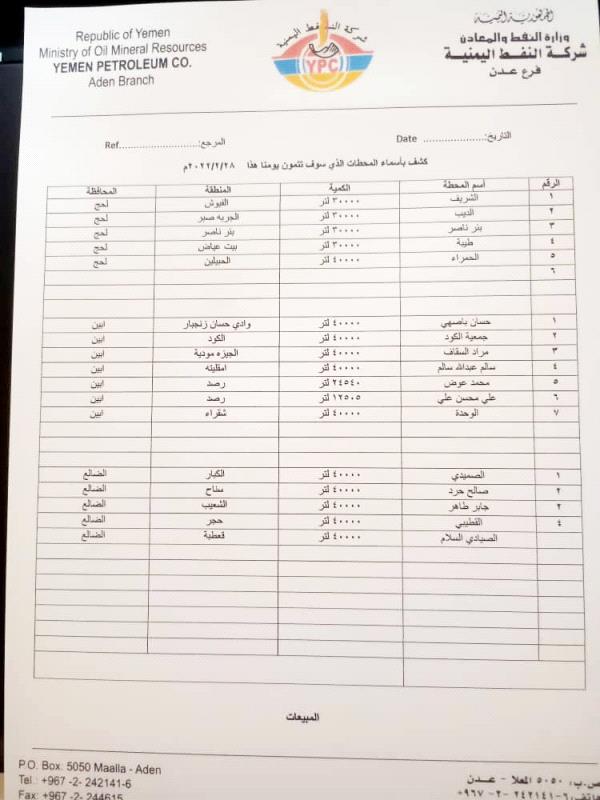 Republic of Yemen
Ministry of Oil Mineral Resources
YEMEN PETROLEUM CO.
Aden Branch
شركة النفط اليمنية
YPC
الجمهورية اليمنية
وزارة النفط والمعادن
شركة النفط اليمنية
فرع عدن
التاريخ:.................... Date
المرجع:..........................Ref
كشف بأسماء المحطات الذي سوف تتمون يومنا هذا ٢٠٢٢/٢/٢٨م
الرقم اسم المحطة الكمية المنطقة المحافظة
١ الشريف ٣٠٠٠٠ لتر الفيوش لحج
٢ الديب ٣٠٠٠٠ لتر الجربه صبر لحج
٣ بئر ناصر ٣٠٠٠٠ لتر بئر ناصر لحج
٤ طيبة ٣٠٠٠٠ لتر بيت عياض لحج
٥ الحمراء ٤٠٠٠٠ لتر الحبيلين لحج
٦
١ حسان باصهي ٤٠٠٠٠ لتر وادي حسان زنجبار ابين
٢ جمعية الكود ٤٠٠٠٠ لتر الكود ابين
٣ مراد السقاف ٤٠٠٠٠ لتر الجيزه مودية ابين
٤ سالم عبدالله سالم ٤٠٠٠٠ لتر امقليته ابين
٥ محمد عوض ٢٤٥٤٠ لتر رصد ابين
٦ علي محسن علي ١٢٥٠٥ لتر رصد ابين
٧ الوحدة ٤٠٠٠٠ لتر شقراء ابين
١ الصميدي ٤٠٠٠٠ لتر الكبار الضالع
٢ صالح حرد ٤٠٠٠٠ لتر سناح الضالع
٢ جابر طاهر ٤٠٠٠٠ لتر الشعيب الضالع
٤ القطيبي ٤٠٠٠٠ لتر حجر الضالع
الصيادي السلام ٤٠٠٠٠ لتر قعطبة الضالع
المبيعات
P.O. Box: 5050 Maalla - Aden
Tel.: +967 -2- 242141-6
Fax: +967 -2- 244615
ص.ب: ٥٠٥٠ المعلا - عدن
هاتف: ٦-٢٤٢١٤١ -٢- ٩٦٧+